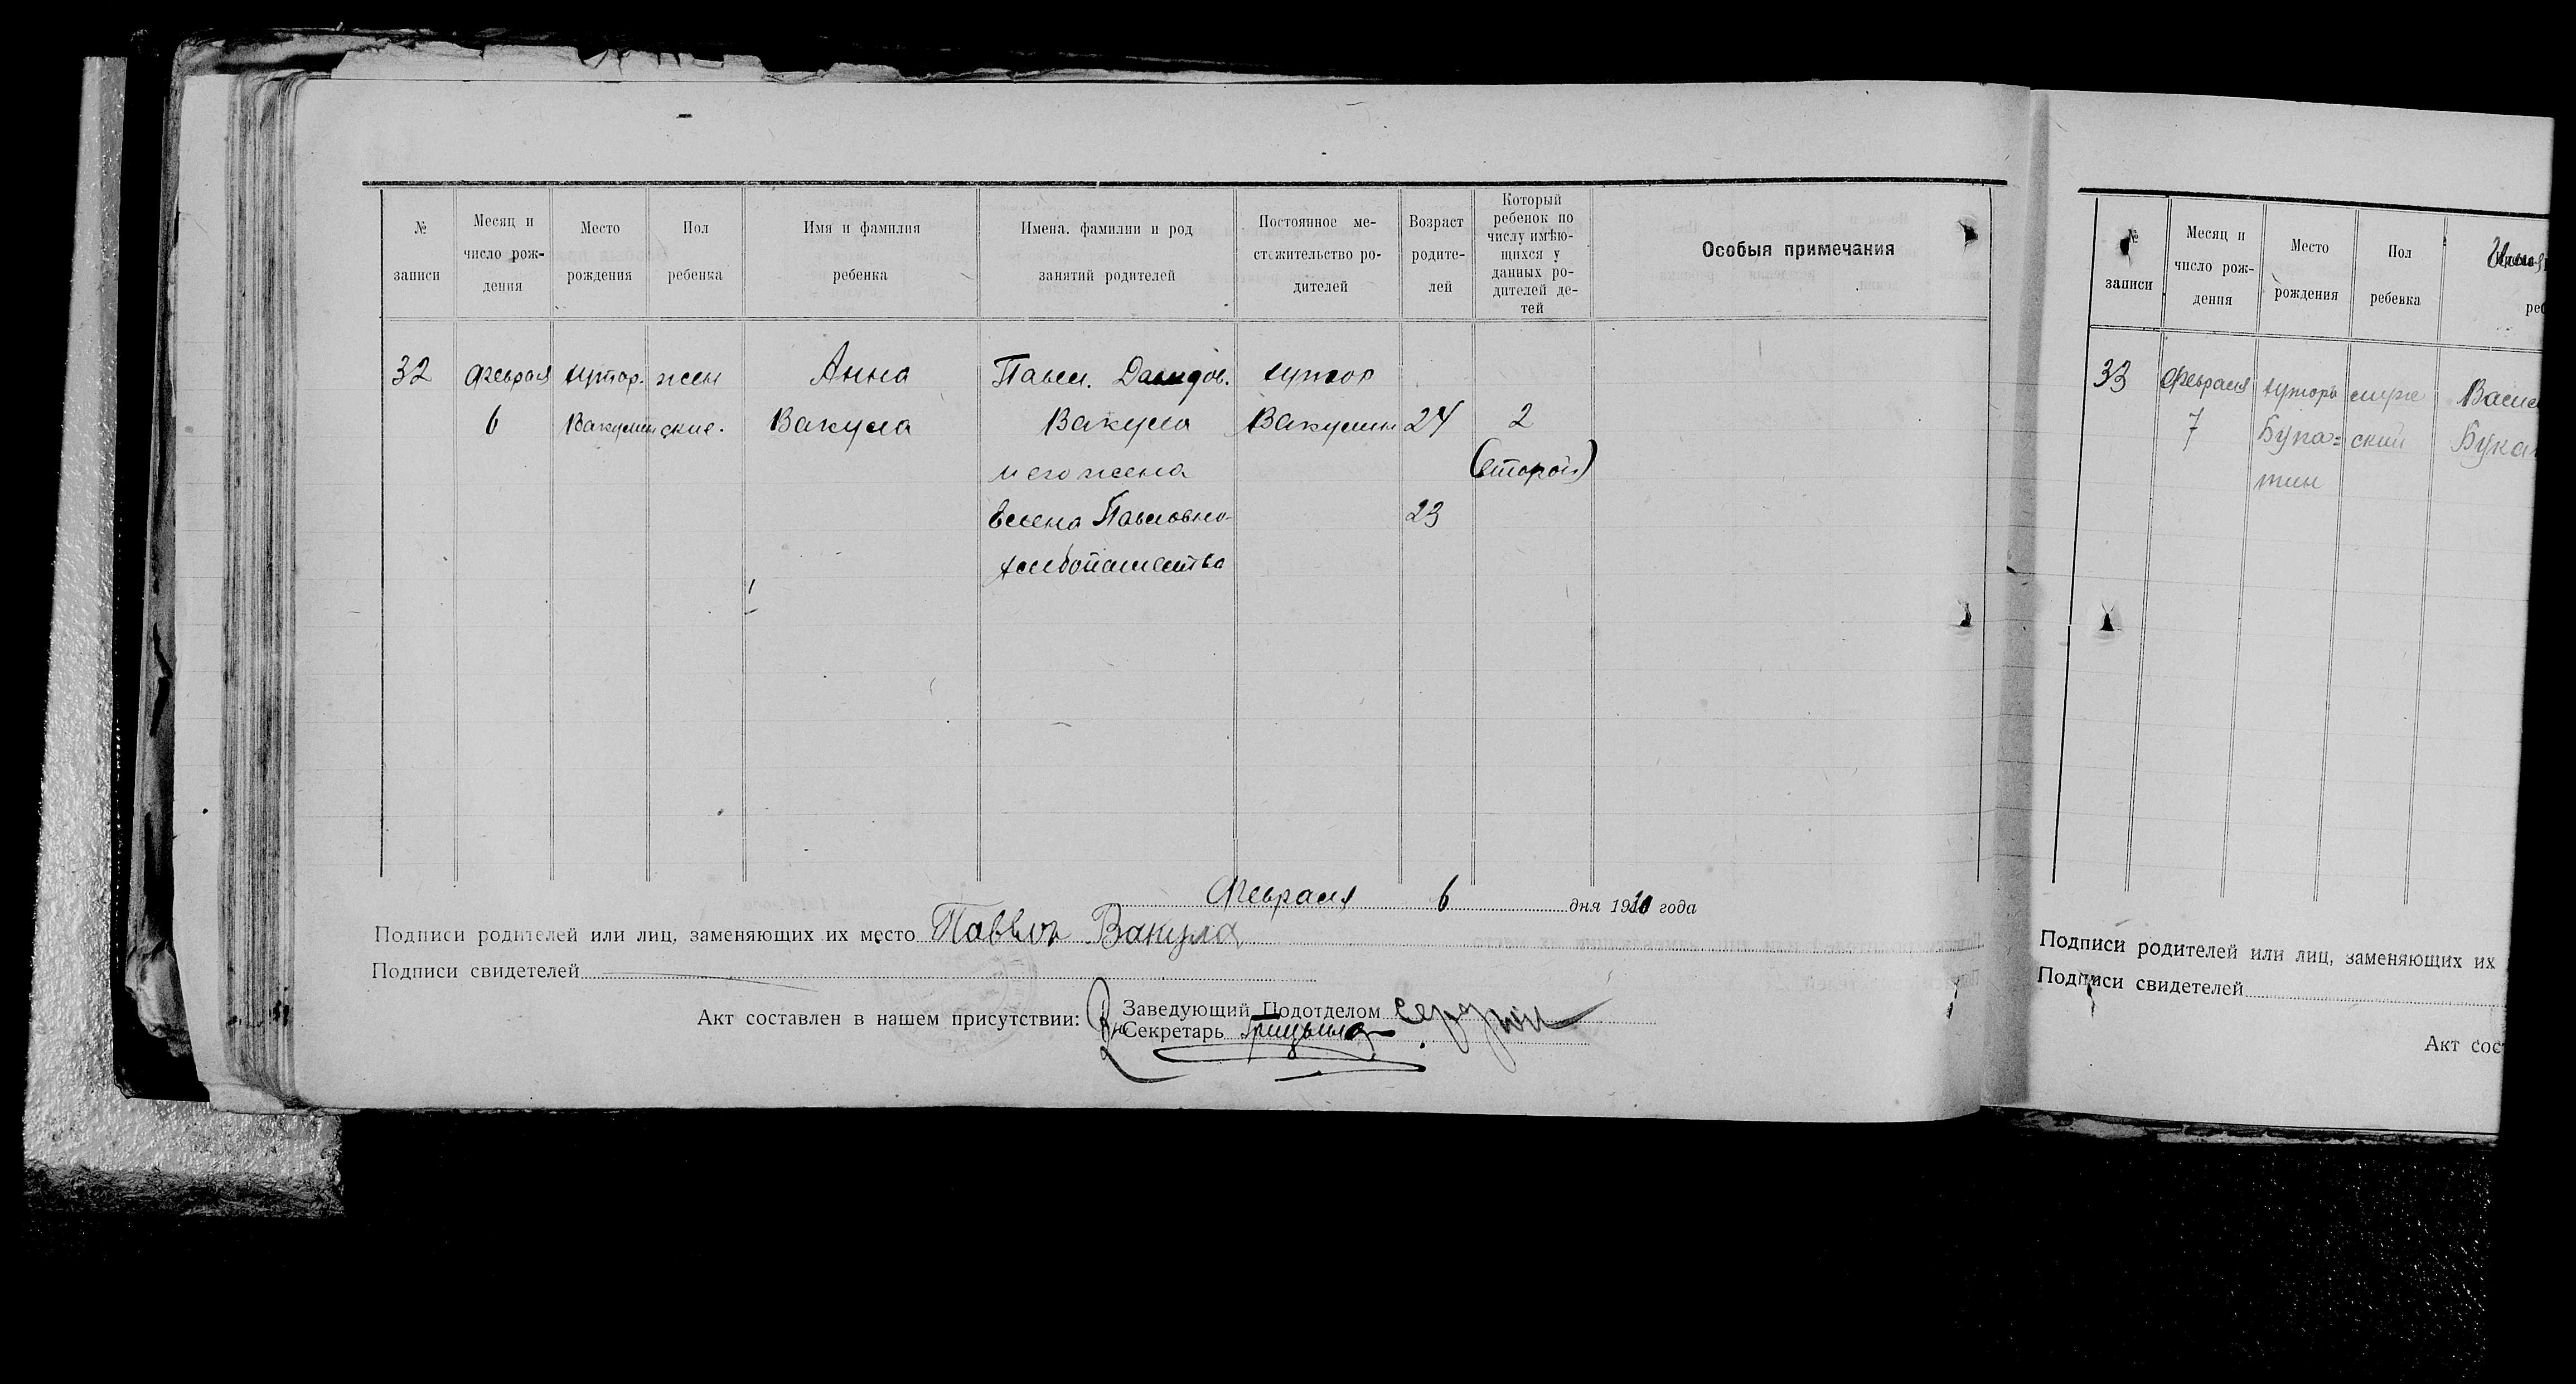 № записи
Месяц и число рождения
Место рождения
Пол ребенка
Имя и фамилия ребенка
Имена, фамилии и род занятий родителей
Постоянное местожительство родителей
Возраст родителей
Который ребенок по числу имѣющихся у данных родителей детей
Особыя примечания
32 Февраля хутор. жен Анна Павел. Давидов. хутор
6 Вакулин ские. Вакула Вакула Вакулин 24 2
и его жена (второй)
Елена Павловна 23
хлебопашество
Февраля 6 дня 19 года
Подписи родителей или лиц, заменяющих их место Паввлоъ Вакула
Подписи свидетелей
Акт составлен в нашем присутствии: Заведующий Подотделом
Секретарь
№ записи
Месяц и число рождения
Место рождения
Пол ребенка
33 Февраля хуторъ муже
7 Бука= ский
тин
Подписи родителей или лиц, заменяющих их
Подписи свидетелей
Акт сос